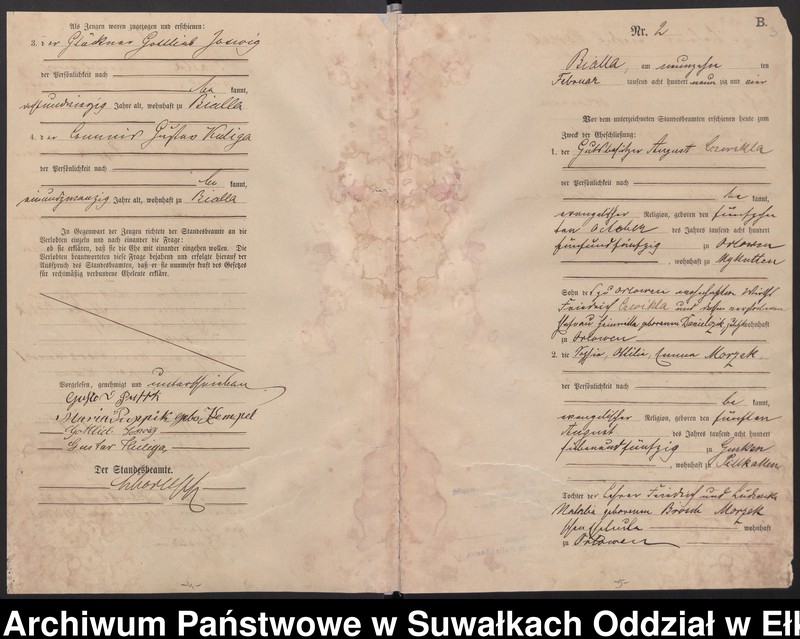 Als Zeugen waren zugezogen und erschienen:
3. der Glöckner Gottlieb Joswig
der Persönlichkeit nach
be kannt,
Jahre alt, wohnhaft zu Bialla
4. der Commis Gustav Kuliga
der Persönlichkeit nach
be kannt,
einundzwanzig Jahre alt, wohnhaft zu Bialla
In Gegenwart der Zeugen richtete der Standesbeamte an die
Verlobten einzeln und nach einander die Frage:
ob sie erklären, daß sie die Ehe mit einander eingehen wollen. Die
Verlobten beantworteten diese Frage bejahend und erfolgte hierauf der
Ausspruch des Standesbeamten, daß er sie nunmehr kraft des Gesetzes
für rechtmäßig verbundene Eheleute erkläre.
Vorgelesen, genehmigt und unterschrieben
Gustav
Maria Puppik geb. Kempel
Gottlieb Joswig
Gustav Kuliga
Der Standesbeamte.
B.
Nr. 2
Bialla, am neunzehn ten
Februar tausend acht hundert neun zig und vier
Vor dem unterzeichneten Standesbeamten erschienen heute zum
Zweck der Eheschließung:
1. der Gutsbesitzer August Czwikla
der Persönlichkeit nach
be kannt,
evangelischer Religion, geboren den fünfzehn
ten October des Jahres tausend acht hundert
fünfundfünfzig zu Orlowen
, wohnhaft zu Mykutten
Sohn des zu Orlowen wohnhaften Wirths
Friedrich Czwikla und dessen verstorbenen
Ehefrau Heinriette geborenen wohnhaft
zu Orlowen
2. die Sophie, Ottilie, Emma Morzek
der Persönlichkeit nach
be kannt,
evangelischer Religion, geboren den fünften
August des Jahres tausend acht hundert
siebenundfünfzig zu Gusken
, wohnhaft zu
Tochter der Lehrer Friedrich und Ludowika
Natalie geborenen Brosch Morzek
wohnhaft
zu Orlowen
Archiwum Państwowe w Suwałkach Oddział w Ełk